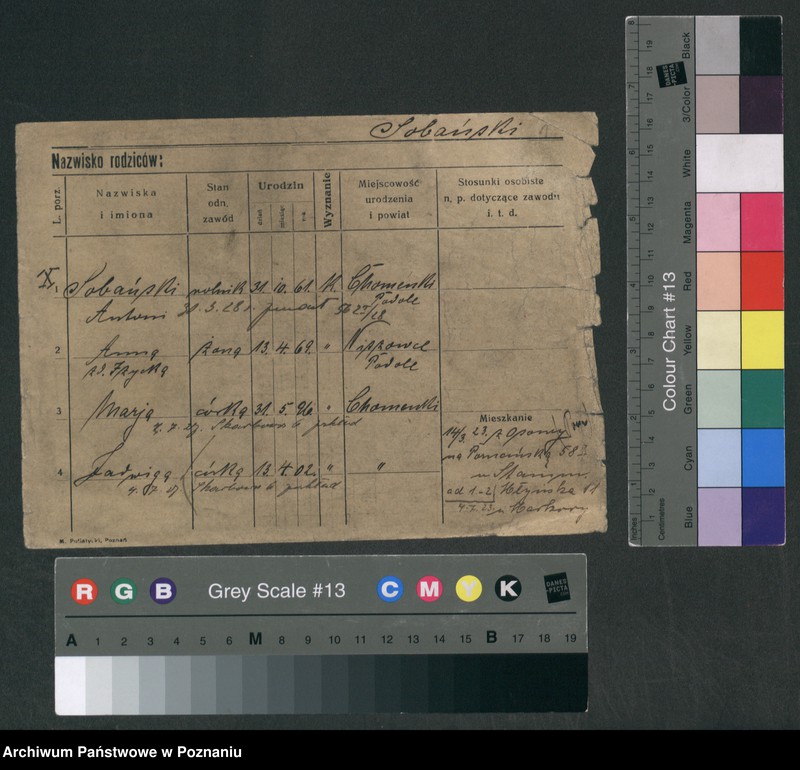 Sobański
Nazwisko rodziców:
L. porz.
Nazwiska
i imiona
Stan
odn.
zawód
Urodzin
dzień
miesiąc
rok
Wyznanie
Miejscowość
urodzenia
i powiat
Stosunki osobiste
n. p. dotyczące zawodu
i. t. d.
1 Sobański rolnik 31. 10. 61. k. Chomenki
Antoni 31. 3. 28 r. Podole
2 Anna żona 13. 4. 69. " 
Podole
3 Marja córka 31. 5. 96. " Chomenki
4. 7. 27. Skarbowa 6
4 Jadwiga córka 13. 4. 02. " "
4. 7. 27. Skarbowa 6
Mieszkanie
14/3 23. z
na Poznańską 58
w
od 1-2
4. 7. 23.
M. Putiatycki, Poznań
R G B Grey Scale #13 C M Y K
DANES
PICTA
.COM
A 1 2 3 4 5 6 M 8 9 10 11 12 13 14 15 B 17 18 19
Colour Chart #13
Blue Cyan Green Yellow Red Magenta White 3/Color Black
Inches 1 2 3 4 5 6 7 8
Centimetres 1 2 3 4 5 6 7 8 9 10 11 12 13 14 15 16 17 18 19
DANES
PICTA
.COM
Archiwum Państwowe w Poznaniu